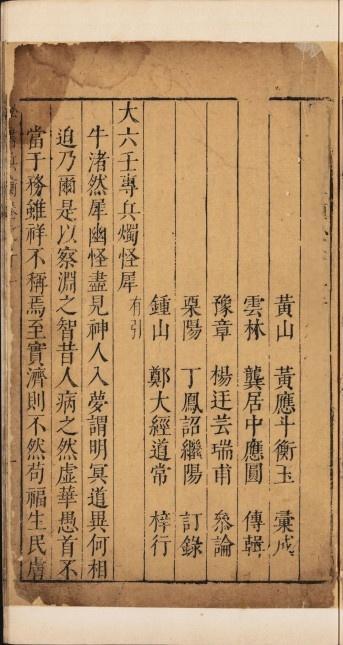 黃山 黃應斗衡玉 彙成
雲林 龔居中應圓 傳輯
豫章 楊廷芸瑞甫 參論
栗陽 丁鳳詔繼陽 訂錄
鍾山 鄭大經道常 梓行
大六壬專兵燭怪犀 有引
牛渚然犀幽怪盡見神人入夢謂明冥道異何相
迫乃爾是以察淵之智昔人病之然虛華愚首不
當于務雖祥不稱焉至實濟則不然苟福生民虜